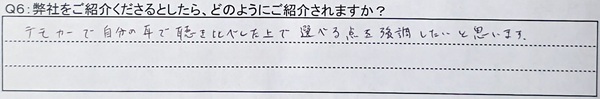 Q6:弊社をご紹介くださるとしたら、どのようにご紹介されますか？
デモカーで自分の耳で聴き比べした上で選べる点を強調したいと思います。